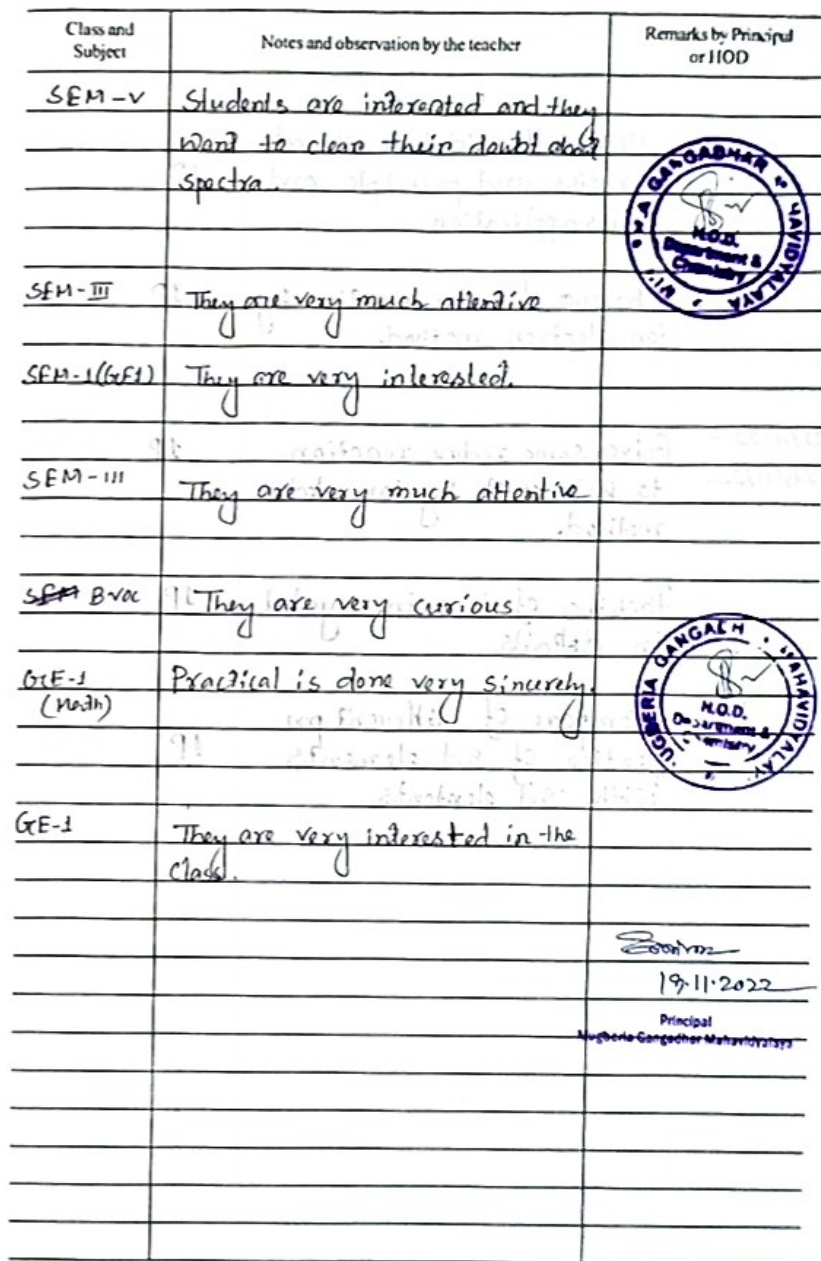 Class and Subject
Notes and observation by the teacher
Remarks by Principal or HOD
SEM-V
Students are interested and they
want to clear their doubt about
spectra.
GANGADHAR
H.O.D.
Department &
Chemistry
SEM-III
They are very much attentive
SEM-1(GE1)
They are very interested.
SEM-III
They are very much attentive
SEM B.voc
They are very curious
GE-1
(Math)
Practical is done very sincerely.
H.O.D.
Department &
GE-1
They are very interested in the
class.
19.11.2022
Principal
Mugberia Gangadhar Mahavidyalaya